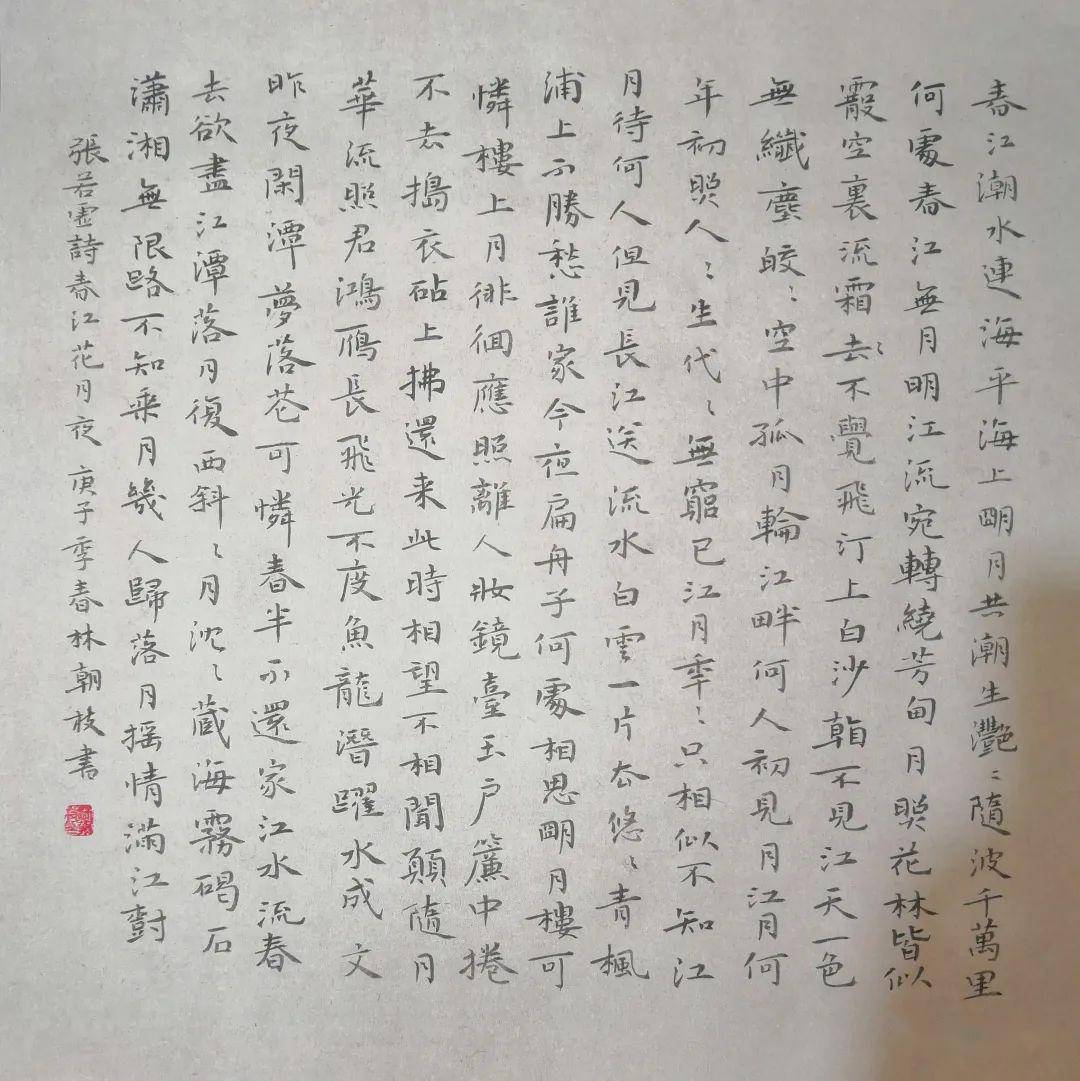 春江潮水連海平海上朙月共潮生灔〻隨波千萬里
何處春江無月明江流宛轉繞芳甸月照花林皆似
霰空裏流霜去〻不覺飛汀上白沙䚲不見江天一色
無纖塵皎〻空中孤月輪江畔何人初見月江月何
年初照人〻生代〻無窮已江月秊〻只相似不知江
月待何人但見長江送流水白雲一片厺悠〻青楓
浦上不勝愁誰家今夜扁舟子何處相思朙月樓可
憐樓上月徘徊應照離人妝鏡臺玉户簾中捲
不去搗衣砧上拂還来此時相望不相聞願隨月
華流照君鴻鴈長飛光不度魚龍潛躍水成文
昨夜閑潭夢落花可憐春半不還家江水流春
去欲盡江潭落月復西斜〻月沈〻蔵海霧碣石
瀟湘無限路不知乘月幾人歸落月摇情滿江對
張若虛詩春江花月夜庚子季春林朝枝書